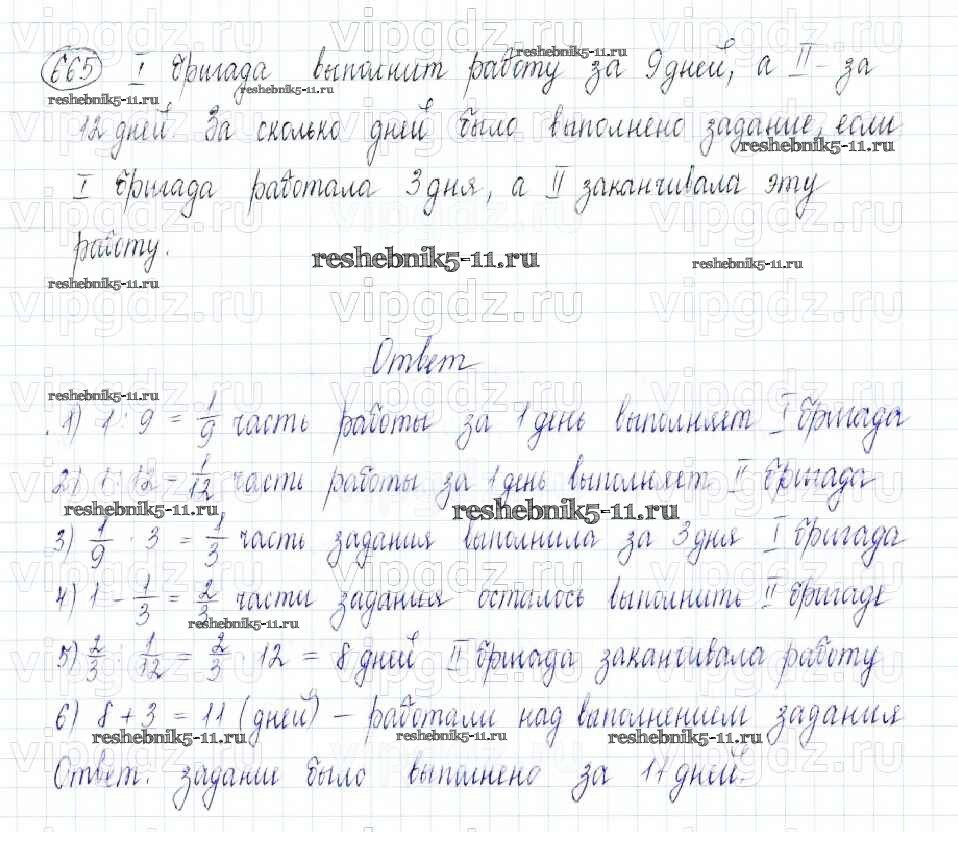 665 I бригада выполнит работу за 9 дней, а II - за
12 дней. За сколько дней было выполнено задание, если
I бригада работала 3 дня, а II заканчивала эту
работу.
Ответ
1) 1 : 9 = 1/9 часть работы за 1 день выполняет I бригада
2) 1 : 12 = 1/12 часть работы за 1 день выполняет II бригада
3) 1/9 · 3 = 1/3 часть задания выполнила за 3 дня I бригада
4) 1 - 1/3 = 2/3 части задания осталось выполнить II бригаде
5) 2/3 : 1/12 = 2/3 · 12 = 8 дней II бригада заканчивала работу
6) 8 + 3 = 11 (дней) - работали над выполнением задания
Ответ: задание было выполнено за 11 дней.
reshebnik5-11.ru
vipgdz.ru